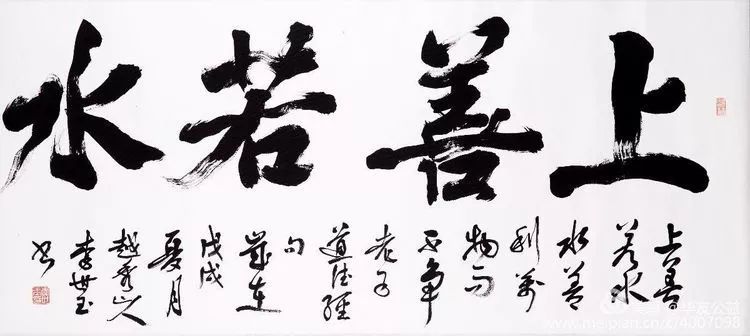 上善若水
上善
若水
水善
利萬
物而
不争
老子
道德經
句
歲在
戊戌
夏月
越秀山人
李世玉
书
华友公益
www.meipian.cn/c/4007098